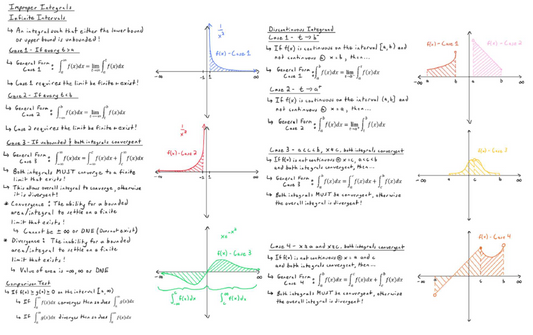 Improper Integrals
Infinite Intervals
↳ An integral such that either the lower bound
or upper bound is unbounded!
Case 1 - If every b > a
↳ General Form
Case 1 : ∫ f(x)dx = lim ∫ f(x)dx
↳ Case 1 requires the limit be finite + exist!
Case 2 - If every b < a
↳ General Form
Case 2 : ∫ f(x)dx = lim ∫ f(x)dx
↳ Case 2 requires the limit be finite + exist!
Case 3 - If unbounded & both integrals convergent
↳ General Form
Case 3 : ∫ f(x)dx = ∫ f(x)dx + ∫ f(x)dx
↳ Both integrals MUST converge to a finite
limit that exists!
↳ This allows overall integral to converge, otherwise
it is divergent!
* Convergence: The ability for a bounded
area/integral to settle on a finite
limit that exists!
↳ Cannot be ± ∞ or DNE (Does not exist)
* Divergence: The inability for a bounded
area/integral to settle on a finite
limit that exists!
↳ Value of area is -∞, ∞ or DNE
Comparison Test
↳ If f(x) ≥ g(x) ≥ 0 on the interval [a, ∞)
↳ If ∫ f(x)dx converges then so does ∫ g(x)dx
↳ If ∫ g(x)dx diverges then so does ∫ f(x)dx
f(x) - Case 1
-∞
1
∞
f(x) - Case 2
-∞
-1
∞
f(x) - Case 3
-∞
∞
∫ f(x)dx
∫ f(x)dx
Discontinuous Integrand
Case 1 - t → b⁻
↳ If f(x) is continuous on the interval [a, b) and
not continuous @ x = b, then...
↳ General Form
Case 1 : ∫ f(x)dx = lim ∫ f(x)dx
Case 2 - t → a⁺
↳ If f(x) is continuous on the interval (a, b] and
not continuous @ x = a, then...
↳ General Form
Case 2 : ∫ f(x)dx = lim ∫ f(x)dx
Case 3 - a < c < b, x ≠ c, both integrals convergent
↳ If f(x) is not continuous @ x = c, a < c < b
and both integrals convergent, then...
↳ General Form
Case 3 : ∫ f(x)dx = ∫ f(x)dx + ∫ f(x)dx
↳ Both integrals MUST be convergent, otherwise
the overall integral is divergent!
↳ If f(x) is not continuous @ x = a and
and both integrals convergent, then...
↳ General Form
Case 4 : ∫ f(x)dx = ∫ f(x)dx + ∫ f(x)dx
↳ Both integrals MUST be convergent, otherwise
the overall integral is divergent!
f(x) - Case 1
f(x) - Case 2
-∞
∞
f(x) - Case 3
-∞
∞
f(x) - Case 4
-∞
∞